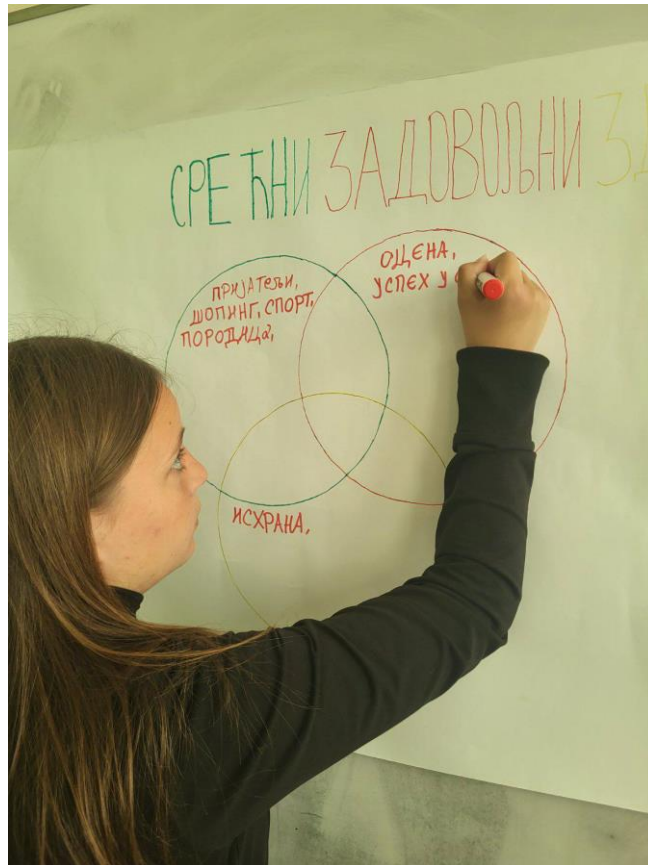 СРЕЋНИ ЗАДОВОЉНИ
ПРИЈАТЕЉИ,
ШОПИНГ, СПОРТ,
ПОРОДИЦа,
ОЦЕНА,
УСПЕХ У
ИСХРАНА,